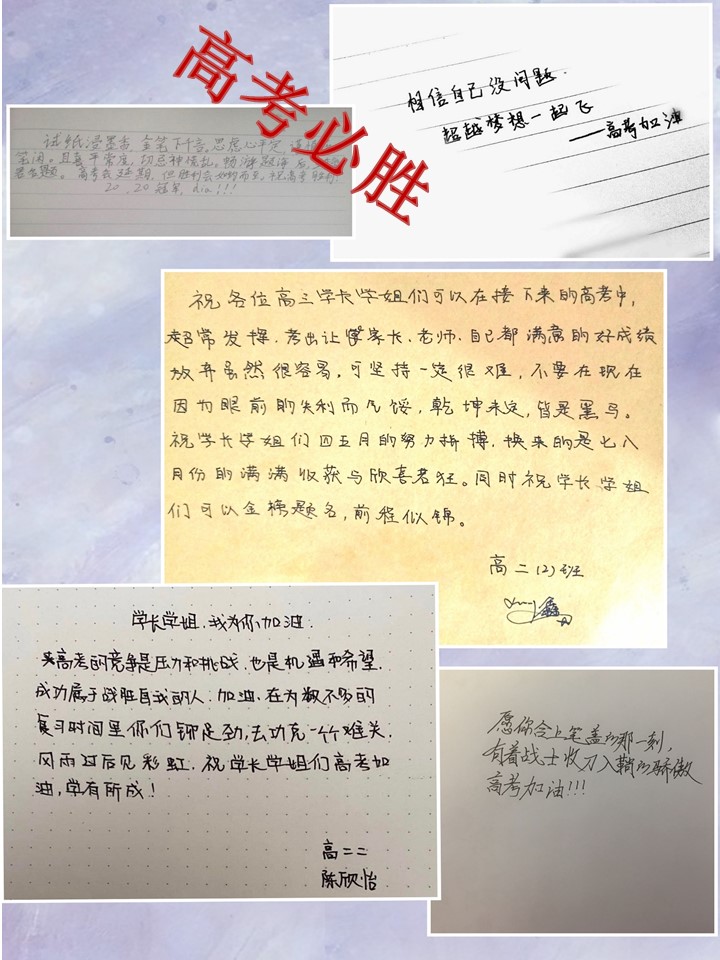 高考必胜
相信自己没问题.
超越梦想一起飞
——高考加油
试纸浸墨香,金笔下千言,思虑心平定,谨慎
落笔闲。且喜平常度,切忌神慌乱。畅游题海后,
署名题。高考会延期,但胜利会如约而至,祝高考胜利,
20,20冠军,dia!!!
祝各位高三学长学姐们可以在接下来的高考中,
超常发挥,考出让家长、老师、自己都满意的好成绩
放弃虽然很容易,可坚持一定很难,不要在现在
因为眼前的失利而气馁,乾坤未定,皆是黑马。
祝学长学姐们四五月的努力拼搏,换来的是七八
月份的满满收获与欣喜若狂。同时祝学长学姐
们可以金榜题名,前程似锦。
高二(2)班
学长学姐,我为你加油.
高考的竞争是压力和挑战,也是机遇和希望.
成功属于战胜自我的人.加油,在为数不多的
复习时间里你们铆足劲,去功克一个个难关.
风雨过后见彩虹,祝学长学姐们高考加
油,学有所成!
高二二
陈欣怡
愿你合上笔盖的那一刻,
有着战士收刀入鞘的骄傲
高考加油!!!